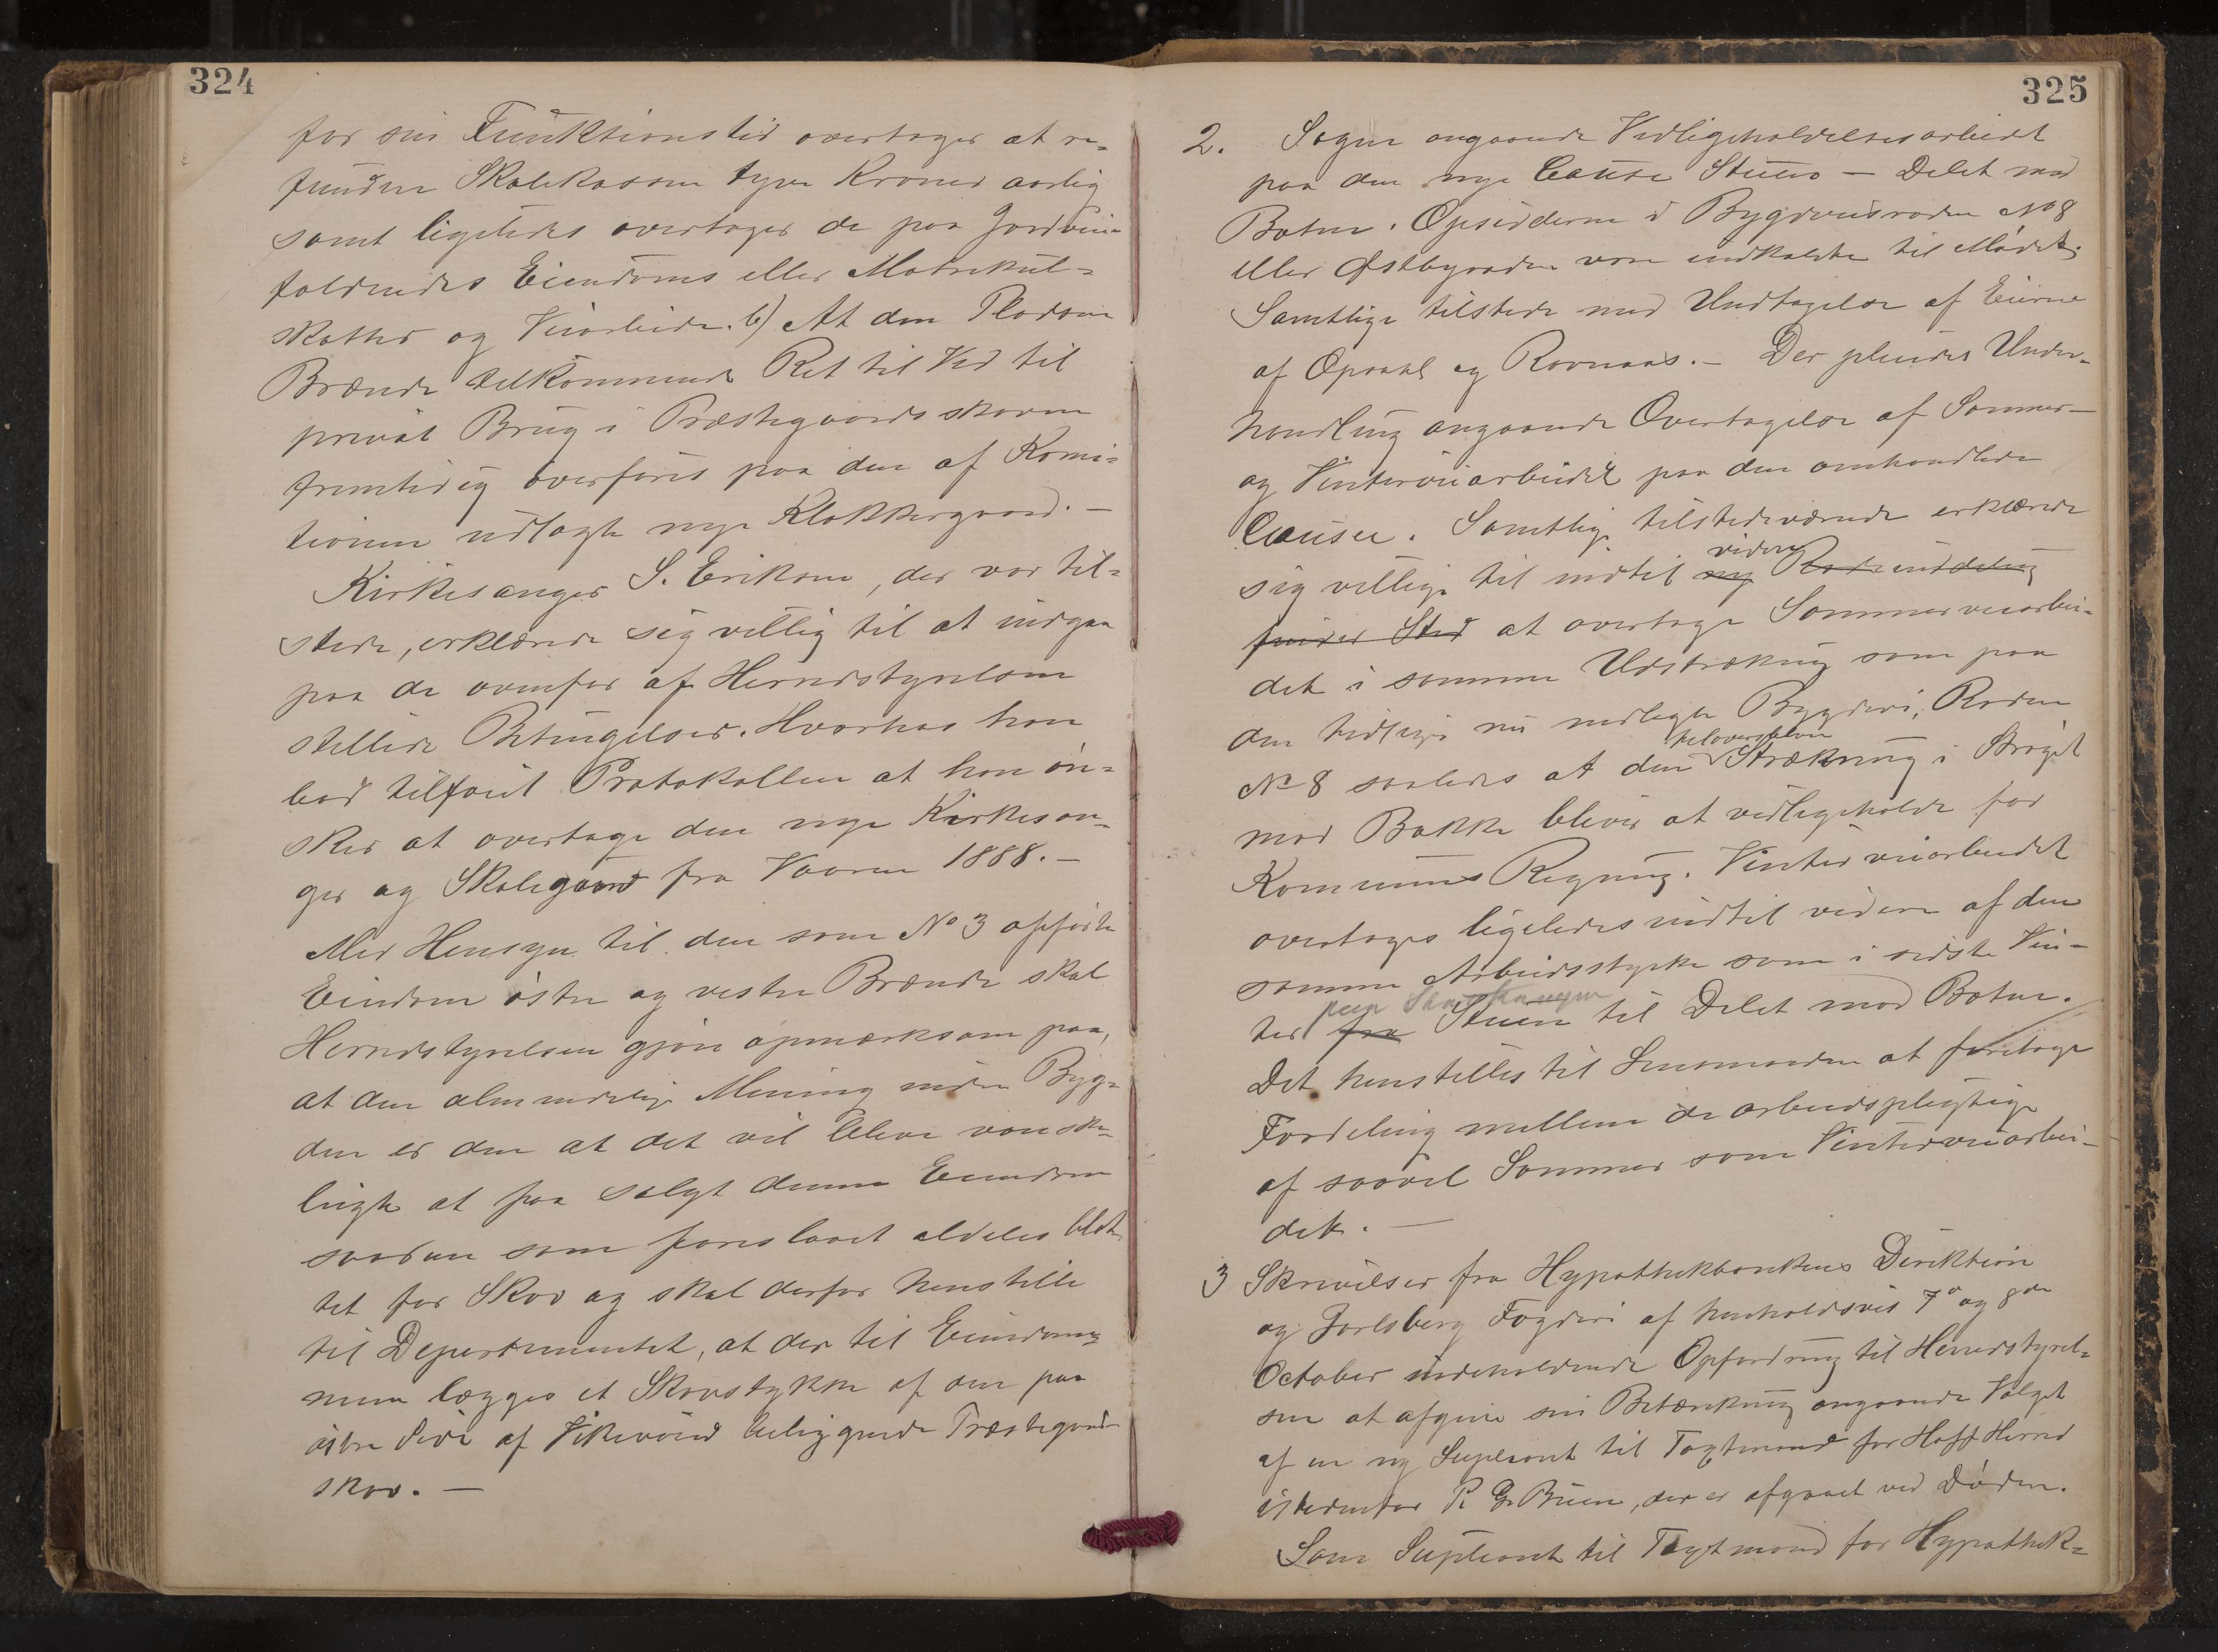 324
for sin Funktionstid overtager at re-
fundere Skolekassen tyve Kroner aarlig
samt ligeledes overtager de paa Jordvein
faldendes Eiendoms eller Matrikul-
skatter og Veiarbeide. b) At den Pladsen
Brænde tilkommende Ret til Ved til
privat Brug i Præstegaardsskoven
fremtidig overføres paa den af Komi-
tionen udlagte nye Klokkergaard. -
Kirkesanger S. Eriksen, der var til-
stede, erklærede sig villig til at indgaa
paa de ovenfor af Herredstyrelsen
stillede Betingelser. Hvorhos han
bad tilført Protokollen at han øn-
sker at overtage den nye Kirkesan-
ger og Skolegaard fra Vaaren 1888. -
Med Hensyn til den som No 3 opførte
Eiendom østre og vestre Brænde skal
Herredstyrelsen gjøre opmærksom paa,
at den almindelige Mening inden Byg-
den er den at det vil blive vanske-
ligt at faa solgt denne Eiendom
saadan som foreslaaet aldeles blot-
tet for Skov og skal derfor henstille
til Departementet, at der til Eiendom-
men lægges et Skovstykke af den paa
østre Side af Vikevand beliggende Præstegaards
skov. -
325
2. Sagen angaaende Vedligeholdelsesarbeidet
paa den nye Causee Stuen - Delet mod
Botne. Opsidderne i Bygdeveisroden No 8
eller Østbyroden vare indkaldte til Mødet.
Samtlige tilstede med Undtagelse af Eierne
af Opsahl og Rovnaas. - Der pleiedes Under-
handling angaaende Overtagelse af Sommer-
og Vinterveiarbeidet paa den omhandlede
Causee. Samtlige tilstedeværende erklærede
sig villige til indtil ny videre Rodeinddeling
finder Sted at overtage Sommerveiarbei-
det i samme Udstrækning som paa
den tidligere nu nedlagte Bygdevei, Roden
No 8 saaledes at den tiloversblevne Strækning i Strøget
mod Bakke bliver at vedligeholde for
Kommunens Regning. Vinterveiarbeidet
overtages ligeledes indtil videre af den
samme Arbeidsstyrke som i sidste Vin-
ter fra Stuen til Delet mod Botne.
Det henstilles til Lensmanden at foretage
Fordeling mellem de arbeidspligtige
af saavel Sommer som Vinterveiarbei-
det. -
3 Skrivelser fra Hypothekbankens Direktion
og Jarlsberg Fogderi af henholdsvis 7de og 8de
October indeholdende Opfordring til Herredstyrel-
sen at afgive sin Betænkning angaaende Valget
af en ny Supleant til Taxtmand for Hoff Herred
istedenfor P. G. Buen, der er afgaaet ved Døden.
Som Supleant til Taxtmand for Hypothek-